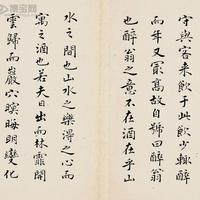 守與客来飲于此飲少輙醉
而年又冣高故自號曰醉翁
也醉翁之意不在酒在乎山
水之間也山水之樂得之心而
寓之酒也若夫日出而林霏開
雲歸而巖穴暝晦明變化